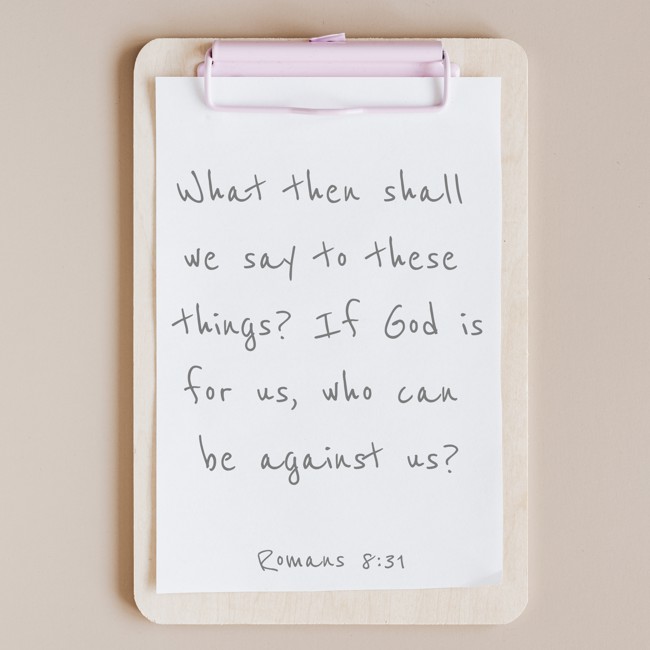 What then shall
we say to these
things? If God is
for us, who can
be against us?
Romans 8:31